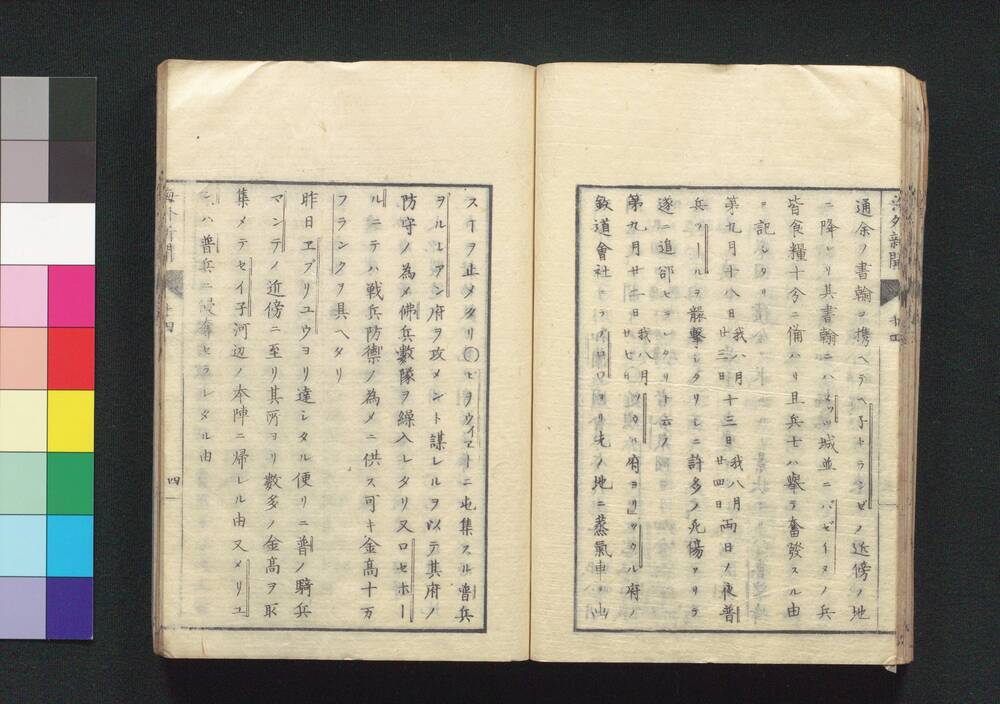 海外新聞
通余ノ書翰ヲ携ヘテヘ子トランゼノ近傍ノ地
ニ降レリ其書翰ニハメッツ城並ニバゼーヌノ兵
皆食糧十分ニ備ハリ且兵士ハ擧テ奮發スル由
ヲ記ルタリ
第九月十八日我八月廿三日十三日我八月廿四日両日ノ夜普
兵ツールヲ襲撃シタリシニ許多ノ死傷アリテ
遂ニ追郤セラレタリト云フ
第九月廿二日我八月廿七日ツウル府ヨリツウル府ノ
鉄道會社
スケヲ止メタリ〇ピヲウイエートニ屯集スル普兵
ヲルレアン府ヲ攻メント謀レルヲ以テ其府ノ
防守ノ為メ佛兵數隊ヲ繰入レタリ又ロセホー
ルニテハ戦兵防禦ノ為メニ供ス可キ金高十万
フランクヲ具ヘタリ
昨日エブリユウヨリ達シタル便リニ普ノ騎兵
マンテノ近傍ニ至リ其所ヨリ數多ノ金高ヲ取
集メテセイ子河辺ノ本陣ニ帰レル由又メリユ
ンハ普兵ニ侵奪セラレタル由
四